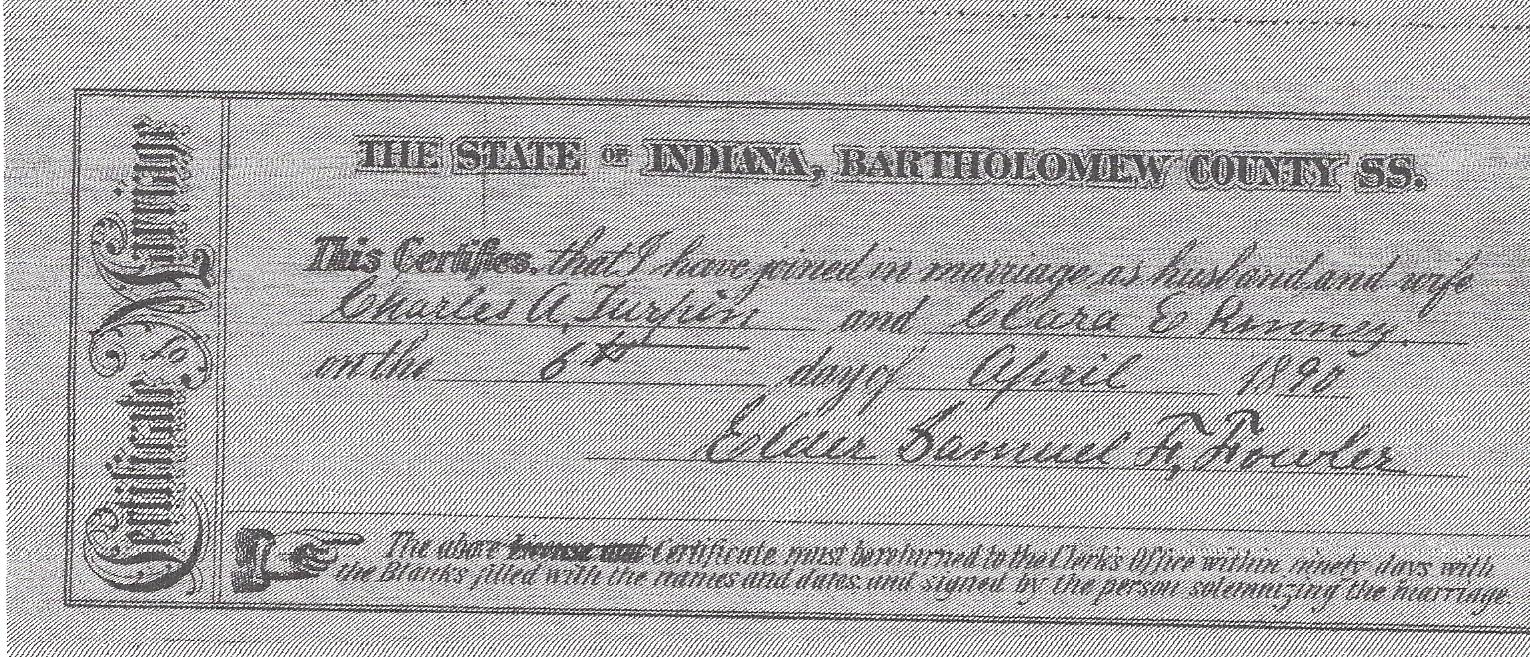 Certificate of Marriage
THE STATE OF INDIANA, BARTHOLOMEW COUNTY SS.
This Certifies, that I have joined in marriage, as husband and wife
Charles A. Turpin and Clara E
on the 6th day of April 1890
Elder Samuel F. Fowler
The above License and Certificate must be returned to the Clerk's Office within ninety days with
the Blanks filled with the names and dates, and signed by the person solemnizing the marriage.